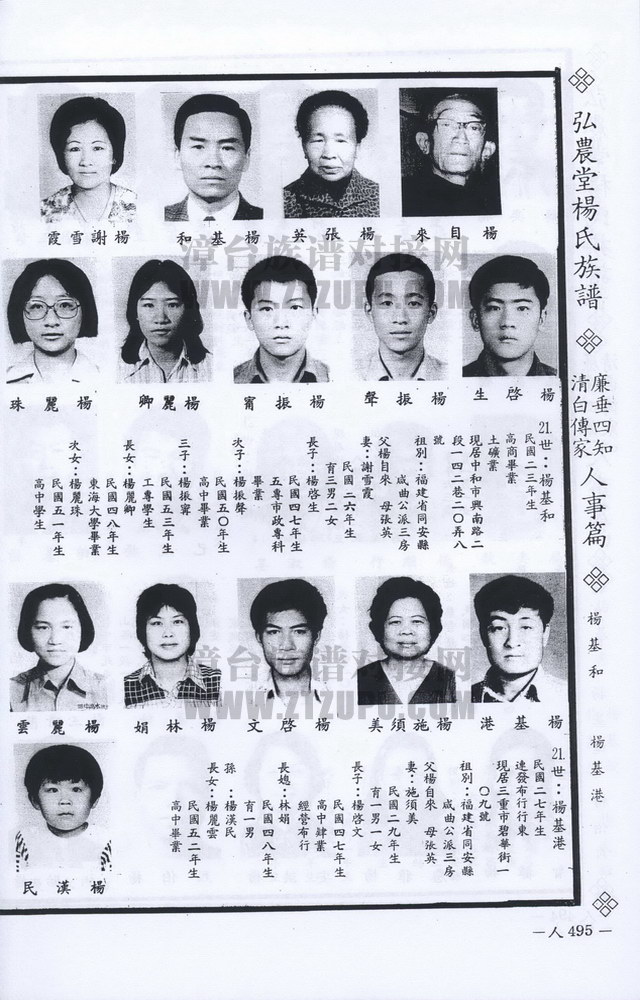 弘農堂楊氏族譜
廉垂四知
清白傳家
人事篇
楊基和
楊基港
楊自來
楊張英
楊基和
楊謝雪霞
楊啓生
楊振聲
楊振甯
楊麗卿
楊麗珠
21.世：楊基和
民國二三年生
高商畢業
土礦業
現居中和市興南路二
段一四二巷二〇弄八
號
祖別：福建省同安縣
咸曲公派三房
父楊自來 母張英
妻：謝雪霞
民國二六年生
育三男二女
長子：楊啓生
民國四七年生
五專市政專科
畢業
次子：楊振聲
民國五〇年生
高中畢業
三子：楊振甯
民國五三年生
工專學生
長女：楊麗卿
民國四八年生
東海大學畢業
次女：楊麗珠
民國五一年生
高中學生
楊基港
楊施須美
楊啓文
楊林娟
楊麗雲
21.世：楊基港
民國二七年生
速發布行行東
現居三重市碧華街一
〇九號
祖別：福建省同安縣
咸曲公派三房
父楊自來 母張英
妻：施須美
民國二九年生
育一男一女
長子：楊啓文
民國四七年生
高中肄業
經營布行
長媳：林娟
民國四八年生
育一男
孫：楊漢民
長女：楊麗雲
民國五二年生
高中畢業
楊漢民
－人495－
漳台族谱对接网
WWW.ZTZUPU.COM
漳台族谱对接网
WWW.ZTZUPU.COM